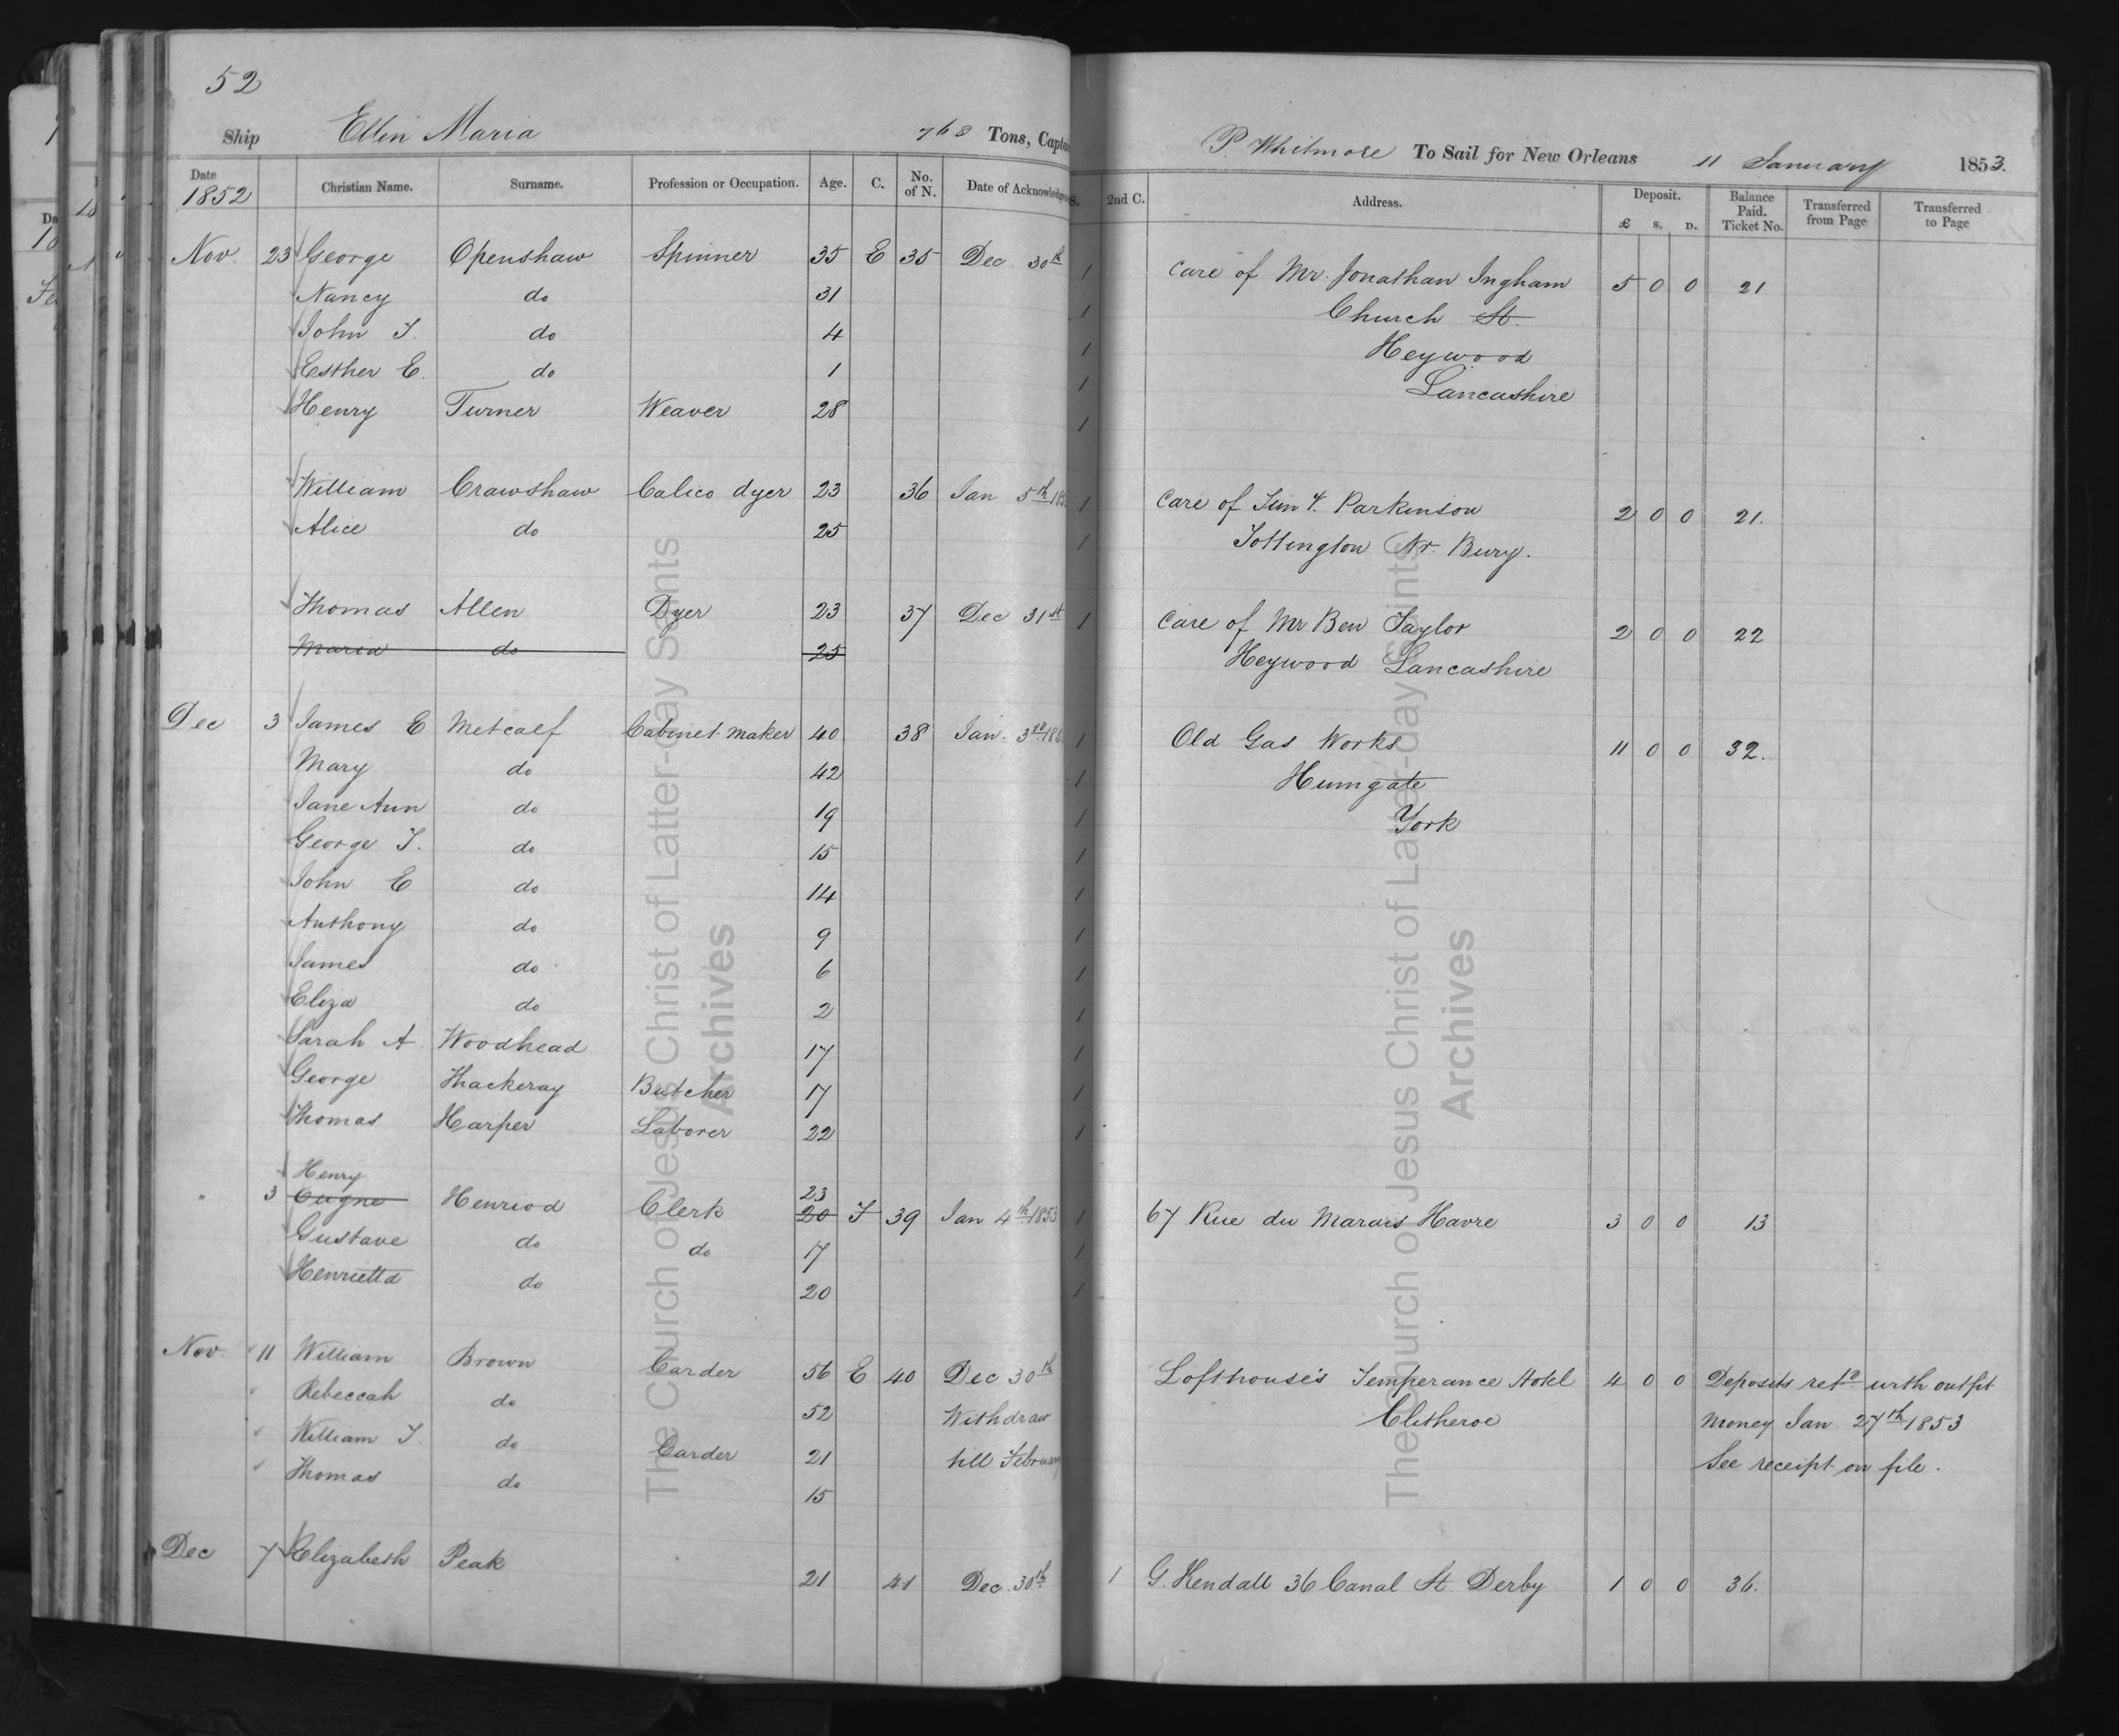 52
Ship Ellen Maria 768 Tons, Captain P. Whitmore To Sail for New Orleans 11 January 1853.
Date 1852 Christian Name. Surname. Profession or Occupation. Age. C. No. of N. Date of Acknowledgment 2nd C. Address. Deposit. £ S. D. Balance Paid. Ticket No. Transferred from Page Transferred to Page
Nov. 23 George Openshaw Spinner 35 E 35 Dec 30th 1 Care of Mr. Jonathan Ingham 5 0 0 21
Nancy do 31 1 Church St.
John J. do 4 1 Heywood
Esther E. do 1 1 Lancashire
Henry Turner Weaver 28 1
William Crawshaw Calico dyer 23 36 Jan 5th 1 Care of Parkinson 2 0 0 21.
Alice do 25 1 Tottington Nr. Bury.
Thomas Allen Dyer 23 37 Dec 31st 1 Care of Mr Ben Taylor 2 0 0 22
Maria do 25 Heywood Lancashire
Dec 3 James E Metcalf Cabinet maker 40 38 Jan. 3rd 1 Old Gas Works 11 0 0 32.
Mary do 42 1 Hungate
Jane Ann do 19 1 York
George J. do 15 1
John E do 14 1
Anthony do 9 1
James do 6 1
Eliza do 2 1
Sarah A Woodhead 17 1
George Thackeray Butcher 17 1
Thomas Harper Laborer 22 1
Henry 23
" 3 Eugne Henriod Clerk 20 F 39 Jan 4th 1853 1 67 Rue du Marais Havre 3 0 0 13
Gustave do do 17 1
Henrietta do 20 1
Nov. 11 William Brown Carder 56 E 40 Dec 30th Lofthouse's Temperance Hotel 4 0 0 Deposits retd with outfit
Rebeccah do 52 Withdraw Clitheroe Money Jan 27th 1853
William J. do Carder 21 till February See receipt on file.
Thomas do 15
Dec 7 Elizabeth Peak 21 41 Dec. 30th 1 G. Kendall 36 Canal St. Derby 1 0 0 36.
The Church of Jesus Christ of Latter-day Saints
Archives
The Church of Jesus Christ of Latter-day Saints
Archives